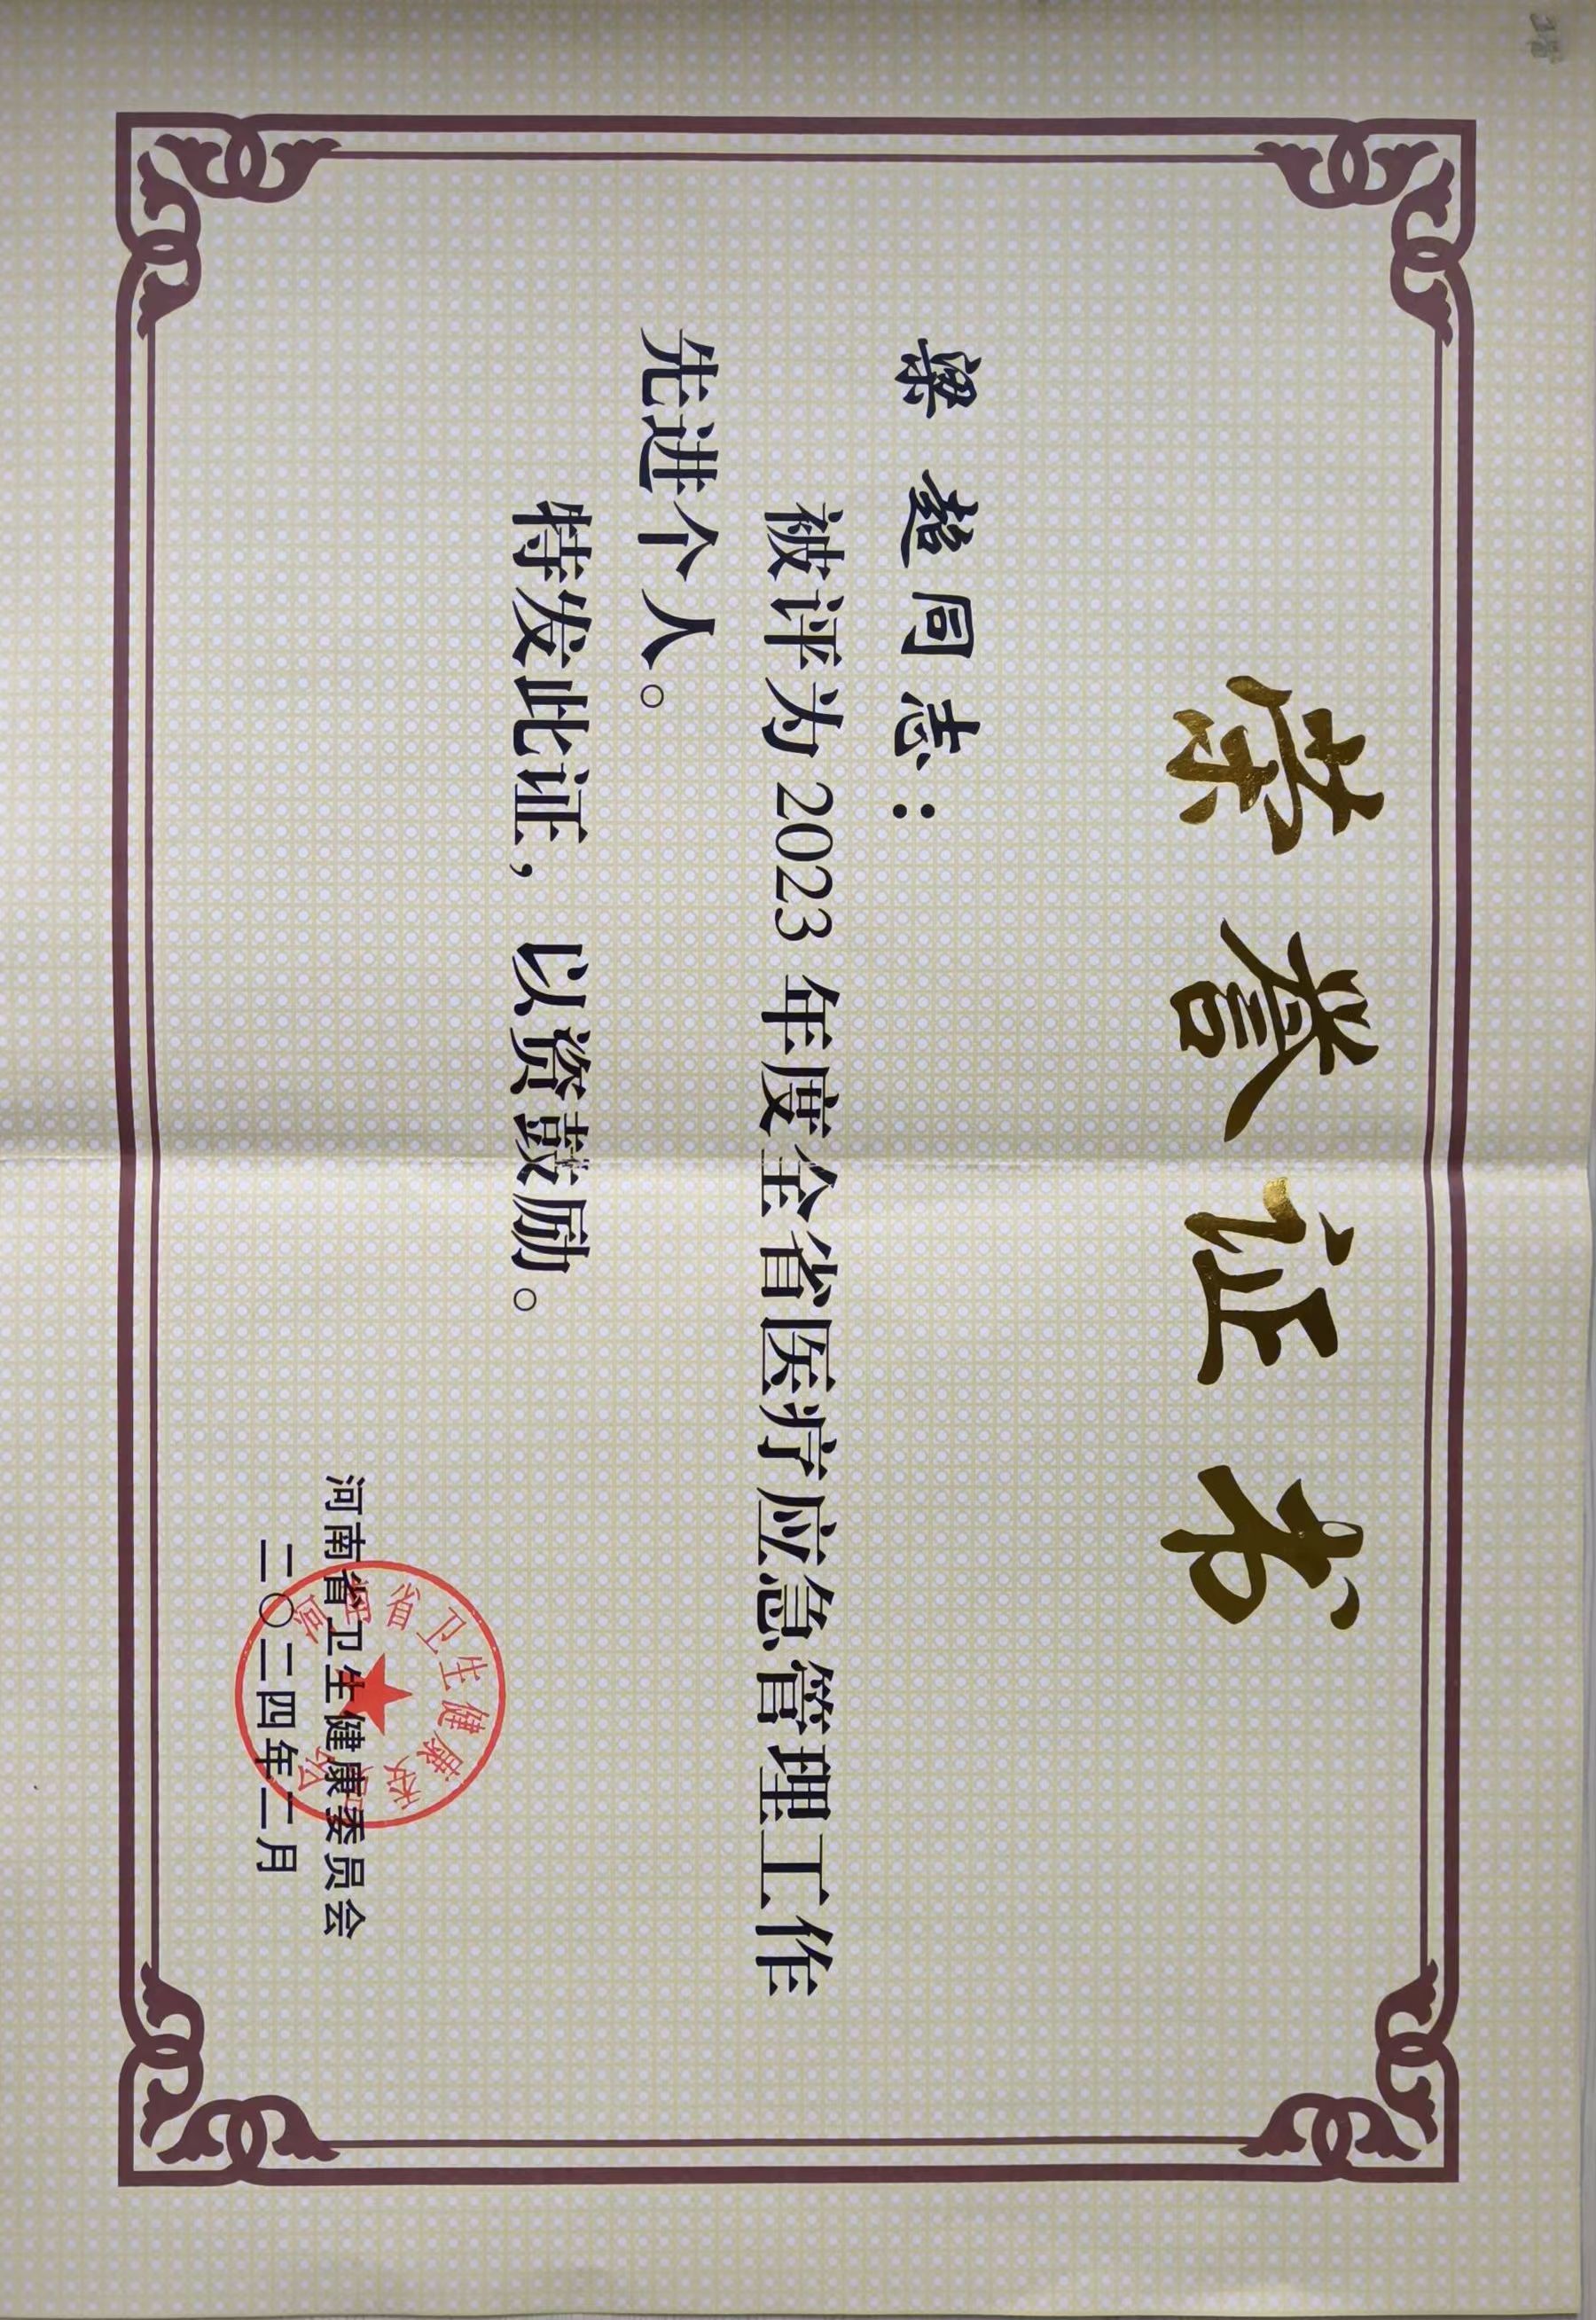 荣誉证书
梁超同志：
被评为2023年度全省医疗应急管理工作
先进个人。
特发此证，以资鼓励。
河南省卫生健康委员会
二〇二四年二月
河南省卫生健康委员会